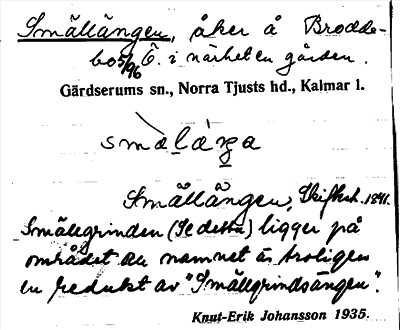 Smällängen, åker å Brodde-
bo 5/96 Ö. i närheten gården.
Gärdserums sn., Norra Tjusts hd., Kalmar l.
smælæŋa
Smällängen, Skiftesh. 1841.
Smällgrinden (Se detta) ligger på
området där namnet är troligen
en redukt av "Smällgrindsängen".
Knut-Erik Johansson 1935.